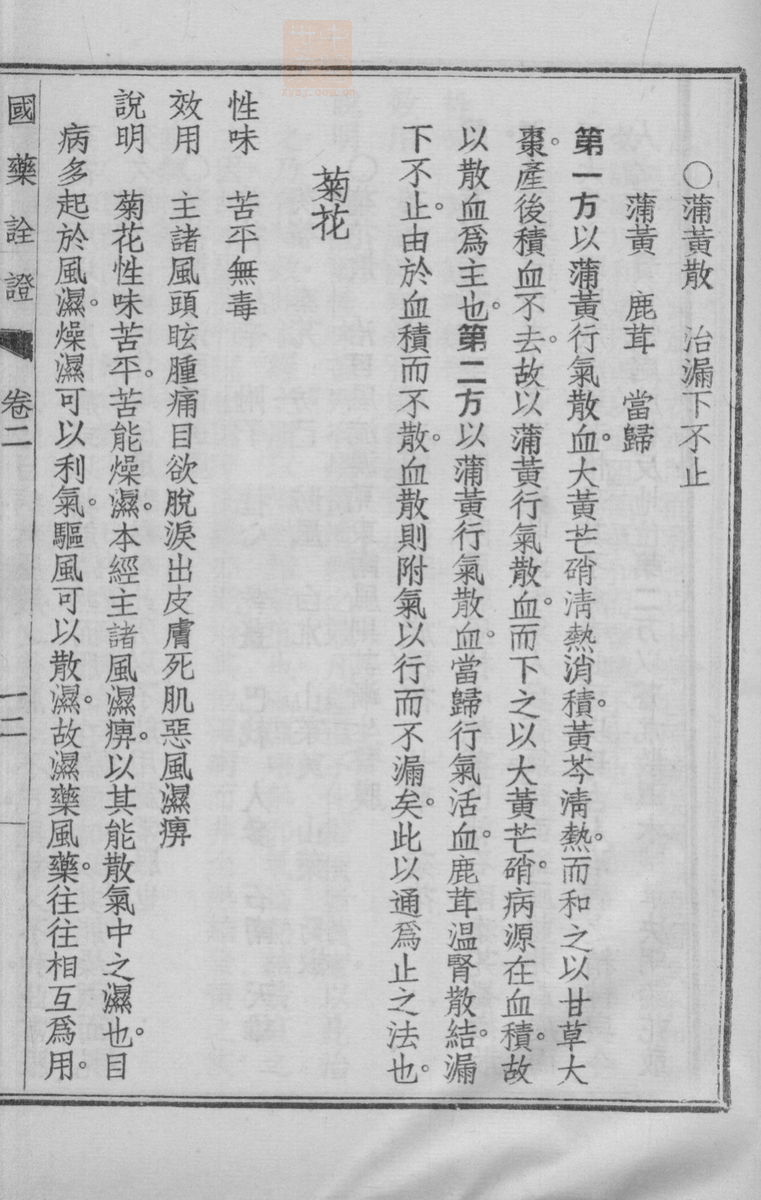 ○蒲黃散　治漏下不止
蒲黃　鹿茸　當歸
第一方以蒲黃行氣散血。大黃芒硝淸熱消積。黃芩淸熱。而和之以甘草大
棗。產後積血不去。故以蒲黃行氣散血。而下之以大黃芒硝。病源在血積。故
以散血爲主也。第二方以蒲黃行氣散血。當歸行氣活血。鹿茸温腎散結。漏
下不止。由於血積而不散。血散則附氣以行而不漏矣。此以通爲止之法也。
菊花
性味　苦平無毒
效用　主諸風頭眩腫痛目欲脫淚出皮膚死肌惡風濕痹
說明　菊花性味苦平。苦能燥濕。本經主諸風濕痹。以其能散氣中之濕也。目
病多起於風濕。燥濕可以利氣。驅風可以散濕。故濕藥風藥。往往相互爲用。
國藥詮證　卷二　一二
zysj.com.cn